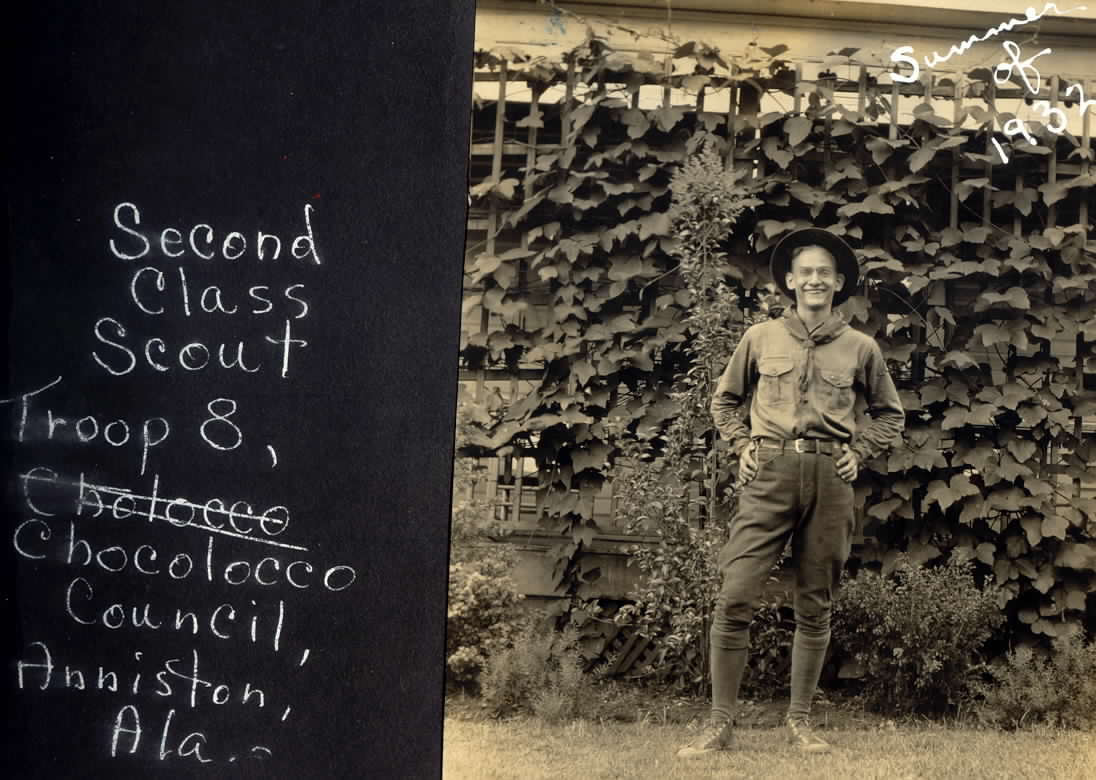 Second
Class
Scout
Troop 8,
Cholocco
Chocolocco
Council,
Anniston,
Ala.
Summer
of
1932